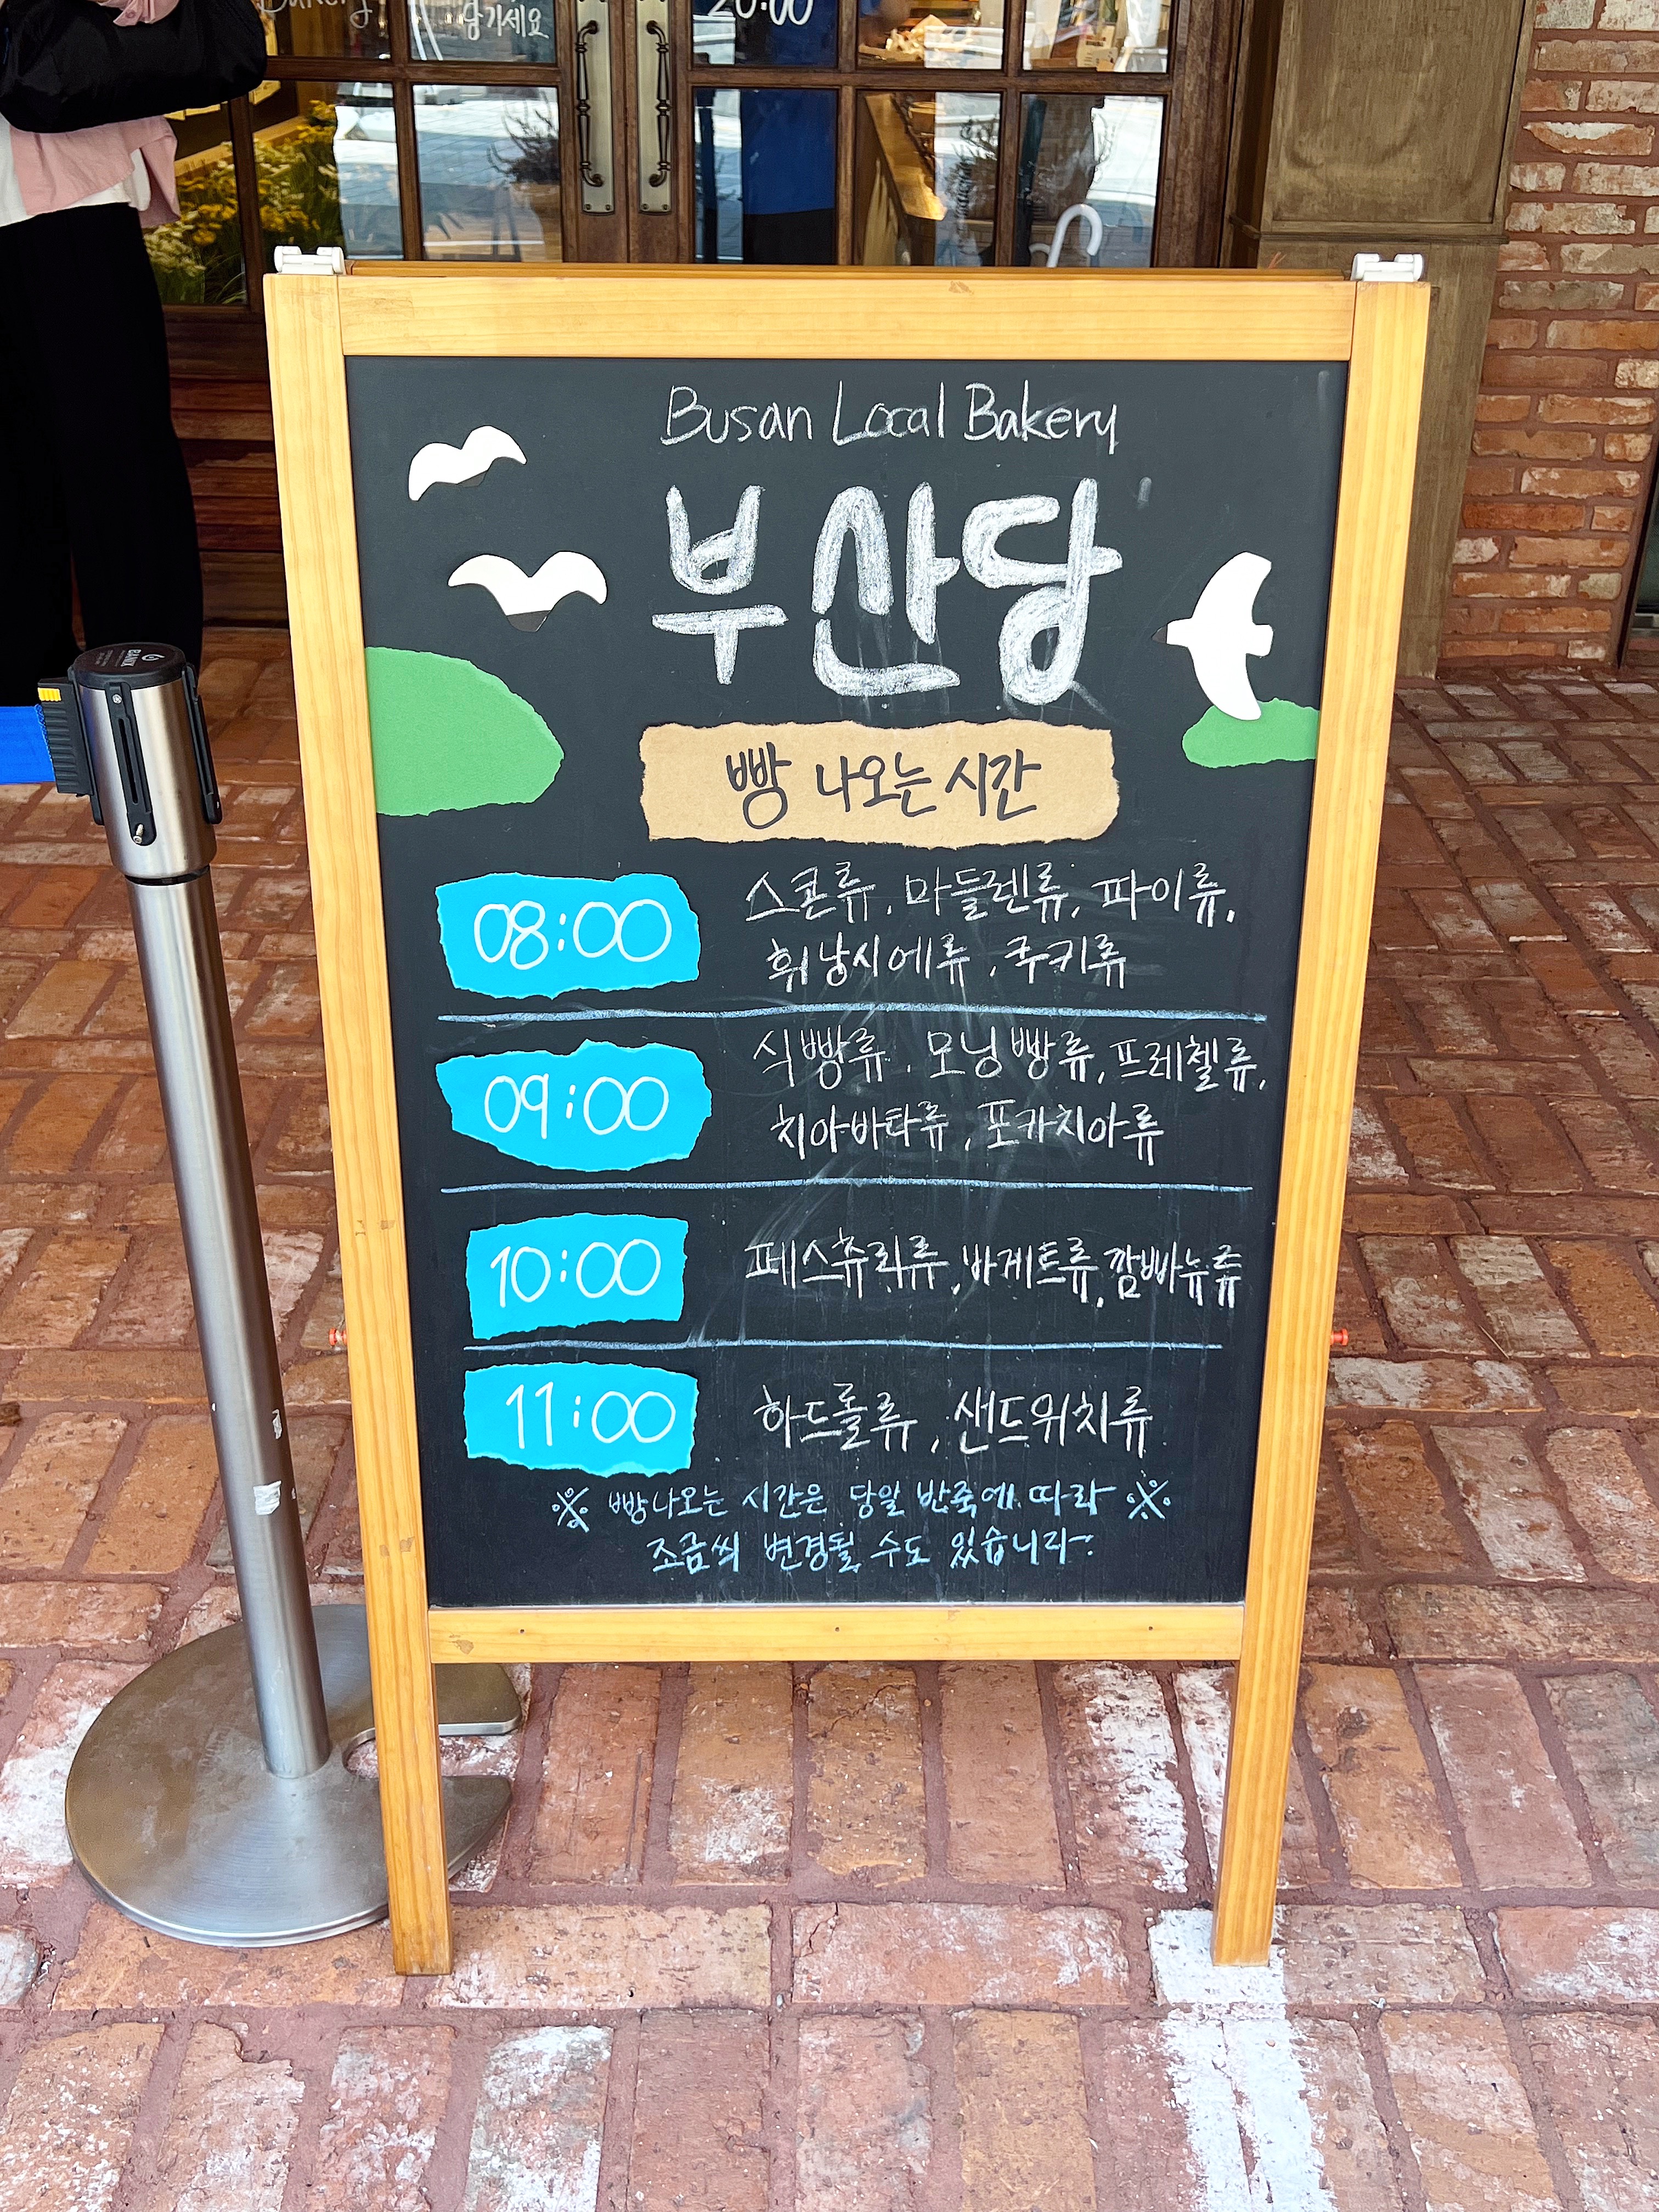 Bakery
당기세요
20:00
Busan Local Bakery
부산당
빵 나오는 시간
08:00
스콘류, 마들렌류, 파이류,
휘낭시에류, 쿠키류
09:00
식빵류, 모닝빵류, 프레첼류,
치아바타류, 포카치아류
10:00
페스츄리류, 바게트류, 깜빠뉴류
11:00
하드롤류, 샌드위치류
※ 빵나오는 시간은 당일 반죽에 따라 ※
조금씩 변경될 수도 있습니다.